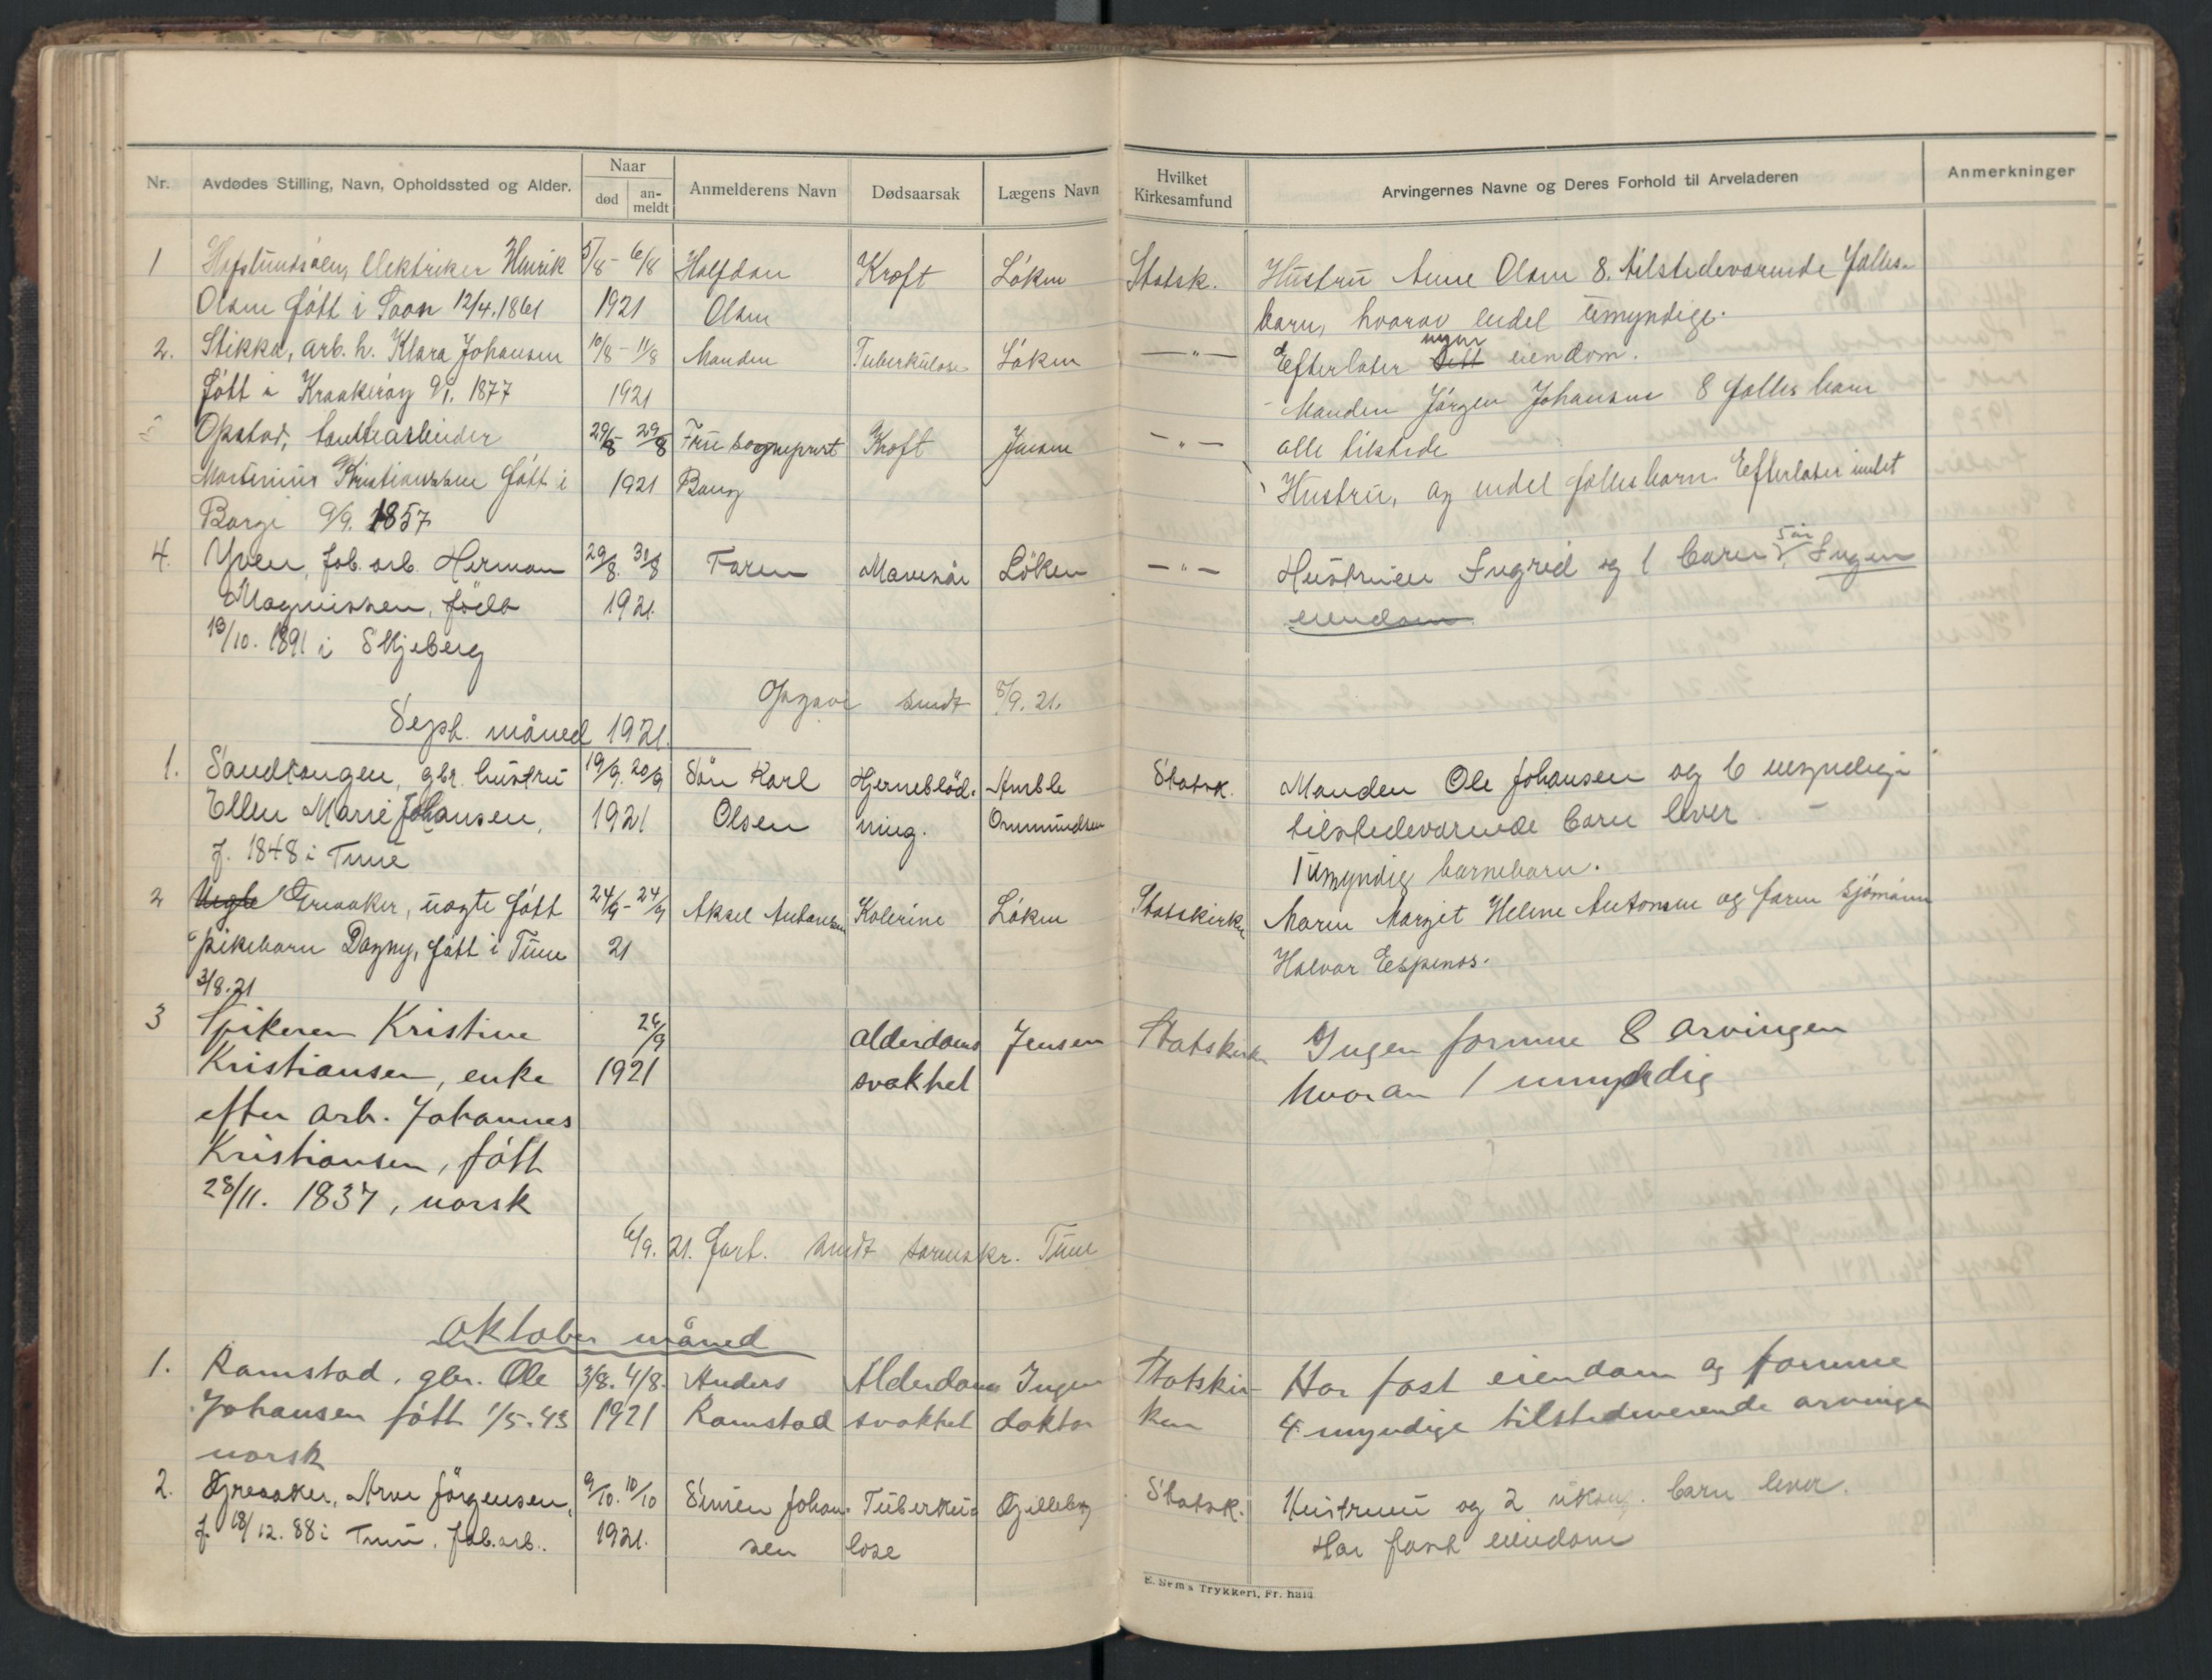 Nr.
Avdødes Stilling, Navn, Opholdssted og Alder.
Naar
død
an-
meldt
Anmelderens Navn
Dødsaarsak
Lægens Navn
Hvilket
Kirkesamfund
Arvingernes Navne og Deres Forhold til Arveladeren
Anmerkninger
1 Elektriker Henrik 5/8 - 6/8 Halfdan Kræft Løken Statsk. Hustru Anne Olsen 8. tilstedeværende fælles-
Olsen født i Soon 12/4.1861 1921 Olsen barn, hvorav endel umyndige.
2. Stikka, arb. h. Klara Johansen 10/8 - 11/8 Manden Tuberkulose Løken —"— Efterlater ingen eiendom.
født i Kraakerøy 9/1. 1877 1921 Manden Jørgen Johansen 8 fælles barn
3 Opstad, 29/8 29/8 Fru sogneprest Kræft Jensen —"— alle tilstede
Martinius Kristianssen født i 1921 Bang Hustru, og endel fællesbarn. Efterlater intet
Borge 9/9. 1857
4. Yven, fab. arb. Herman 29/8. 31/8 Faren Mavesår Løken —"— Hustruen Ingrid og 1 barn 5 år. Ingen
Magnussen, født 1921. eiendom.
19/10. 1891 i Skjeberg
Opgave sendt 8/9. 21.
Sept. måned 1921.
1. Sandtangen, gbr. hustru 19/9. 20/9 Søn Karl Hjerneblød- Amble Statsk. Manden Ole Johansen og 6
Ellen Marie Johansen, 1921 Olsen ning. Ommundsen tilstedeværende barn lever.
f. 1848 i Tune 1 umyndig barnebarn.
2 Greaaker, uægte født 24/9 - 24/9 Aksel Antonsen Kolerine Løken Statskirken Moren Margit Helene Antonsen og faren sjømann
pikebarn Dagny, født i Tune 21 Halvar Espenes.
3/8.21
3 Spikeren Kristine 26/9 alderdoms Jensen Statskirken Ingen formue 8 arvinger
Kristiansen, enke 1921 svakhet hvorav 1 umyndig
efter arb. Johannes
Kristiansen, født
28/11. 1837, norsk
6/9. 21. fort. sendt sorenskr. Tune
oktober måned
1. Ramstad, gbr. Ole 3/8. 4/8. Anders Alderdoms Ingen Statskir- Har fast eiendom og formue
Johansen født 1/5.43 1921 Ramstad svakhet doktor ken 4 myndige tilstedeverende arvinger
norsk
2. Greaaker, Arne Jørgensen, 9/10. 10/10 Simen Johan- Tuberku- Gilleberg Statsk. Hustruen og 2 barn lever.
f. 18/12. 88 i Tune, fab.arb. 1921. sen lose Har fast eiendom
E. Sem's Trykkeri, Fr.hald